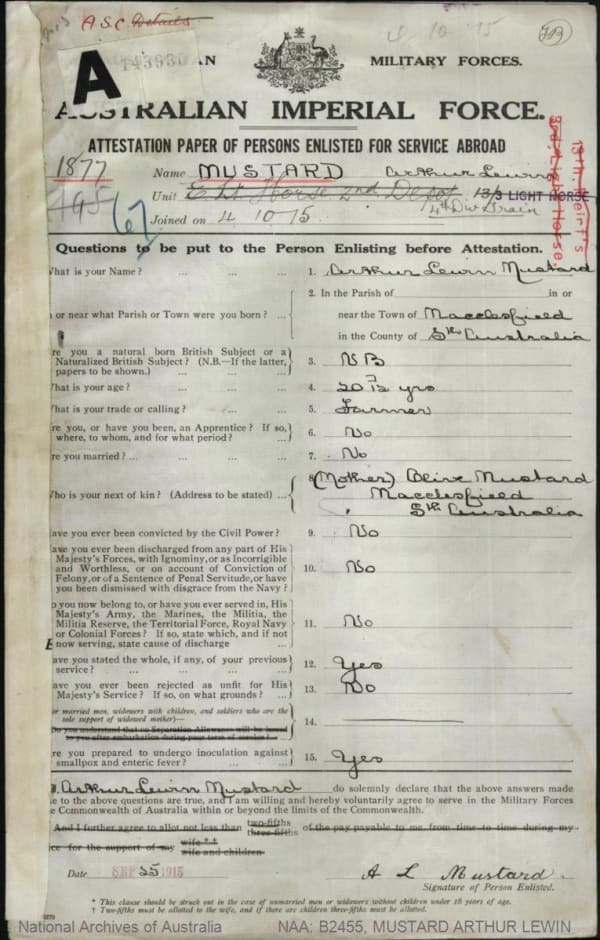 A.S.C Details
4 10 15
A
143930
AN MILITARY FORCES.
AUSTRALIAN IMPERIAL FORCE.
ATTESTATION PAPER OF PERSONS ENLISTED FOR SERVICE ABROAD
1877
495
Name MUSTARD Arthur Lewin
Unit Lt Horse 2nd Depot 13/3 LIGHT HORSE
4th Div Train
Joined on 4 10 15.
3rd Light Horse.
13th Reinfts
Questions to be put to the Person Enlisting before Attestation.
hat is your Name? ... ... ... 1. Arthur Lewin Mustard
2. In the Parish of in or
n or near what Parish or Town were you born? ... near the Town of Macclesfield
in the County of Sth Australia
re you a natural born British Subject or a
Naturalized British Subject? (N.B.—If the latter, 3. NB
papers to be shown.) ... ...
hat is your age? ... ... ... 4. 20 7/12 yrs
hat is your trade or calling? ... ... 5. Farmer
re you, or have you been, an Apprentice? If so,
where, to whom, and for what period? ... 6. No
re you married? ... ... ... ... 7. No
8. (Mother) Olive Mustard
ho is your next of kin? (Address to be stated) ... Macclesfield
Sth Australia
ave you ever been convicted by the Civil Power? 9. No
ave you ever been discharged from any part of His
Majesty's Forces, with Ignominy, or as Incorrigible
and Worthless, or on account of Conviction of 10. No
Felony, or of a Sentence of Penal Servitude, or have
you been dismissed with disgrace from the Navy?
o you now belong to, or have you ever served in, His
Majesty's Army, the Marines, the Militia, the
Militia Reserve, the Territorial Force, Royal Navy 11. No
or Colonial Forces? If so, state which, and if not
now serving, state cause of discharge
ave you stated the whole, if any, of your previous 12. Yes
service? ... ... ... ...
ave you ever been rejected as unfit for His 13. No
Majesty's Service? If so, on what grounds? ...
or married men, widowers with children, and soldiers who are the
sole support of widowed mother)— 14.
Do you understand that no Separation Allowance will be issued
to you after embarkation during your term of service? ...
re you prepared to undergo inoculation against 15. Yes
smallpox and enteric fever? ... ...
Arthur Lewin Mustard do solemnly declare that the above answers made
e to the above questions are true, and I am willing and hereby voluntarily agree to serve in the Military Forces
e Commonwealth of Australia within or beyond the limits of the Commonwealth.
And I further agree to allot not less than two-fifths three-fifths of the pay payable to me from time to time during my
ice for the support of my wife *† wife and children.
Date SEP 25 1915 A L Mustard
Signature of Person Enlisted.
* This clause should be struck out in the case of unmarried men or widowers without children under 18 years of age.
† Two-fifths must be allotted to the wife, and if there are children three-fifths must be allotted.
National Archives of Australia NAA: B2455, MUSTARD ARTHUR LEWIN